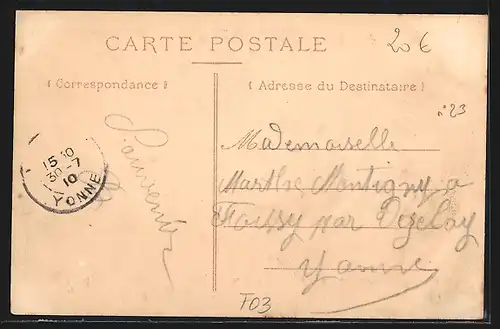 CARTE POSTALE
20 €
( Correspondance )
( Adresse du Destinataire )
n° 23
Souvenir
15 10
30-7
10
YONNE
Mademoiselle
Marthe Montigny a
Foissy par Vezelay
Yonne
F03